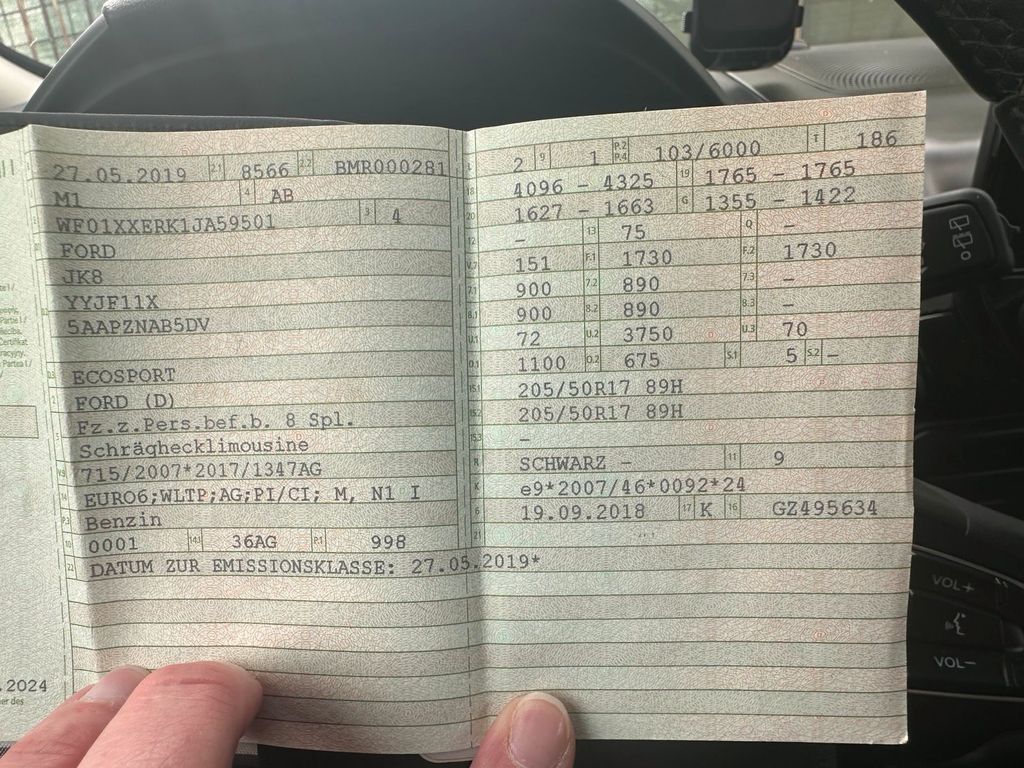 27.05.2019 2.1 8566 2.2 BMR000281
M1 4 AB
WF01XXERK1JA59501 3 4
FORD
JK8
YYJF11X
5AAPZNAB5DV
ECOSPORT
FORD (D)
Fz.z.Pers.bef.b. 8 Spl.
Schräghecklimousine
715/2007*2017/1347AG
EURO6;WLTP;AG;PI/CI; M, N1 I
Benzin
0001 14.1 36AG P.1 998
22 DATUM ZUR EMISSIONSKLASSE: 27.05.2019*
L 2 9 1 P.2 P.4 103/6000 T 186
18 4096 - 4325 19 1765 - 1765
20 1627 - 1663 G 1355 - 1422
12 - 13 75 Q -
V.7 151 F.1 1730 F.2 1730
7.1 900 7.2 890 7.3 -
8.1 900 8.2 890 8.3 -
U.1 72 U.2 3750 U.3 70
O.1 1100 O.2 675 S.1 5 S.2 -
15.1 205/50R17 89H
15.2 205/50R17 89H
15.3 -
R SCHWARZ - 11 9
K e9*2007/46*0092*24
6 19.09.2018 17 K 16 GZ495634
21
.2024
VOL+
VOL-